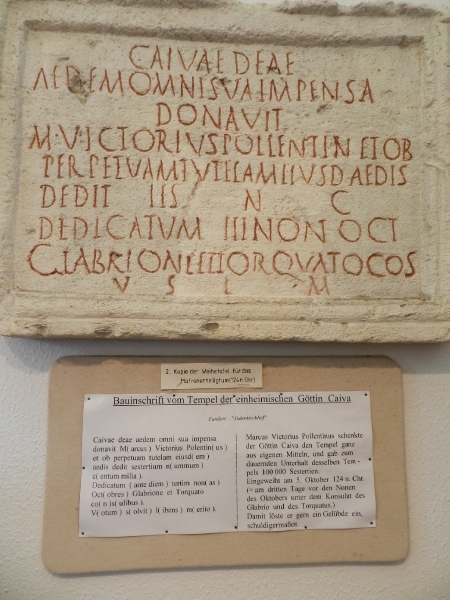 CAIVAE DEAE
AEDEM OMNI SVA IMPENSA
DONAVIT
M·VICTORIVS POLLENTIN ET OB
PERPETVAM TVTELAM EIVSD AEDIS
DEDIT IIS N C
DEDICATVM III NON OCT
GLABRIONE ET TORQVATO COS
V S L M
2. Kopie der Weihetafel für das
Matronenheiligtum(124 n.Chr.)
Bauinschrift vom Tempel der einheimischen Göttin Caiva
Fundort: "Judenkirchhof"
Caivae deae aedem omni sua impensa
donavit M( arcus ) Victorius Pollentin( us )
et ob perpetuam tutelam eiusd( em )
aedis dedit sestertium n( ummum )
c( entum milia ).
Dedicatum ( ante diem ) tertim non( as )
Oct( obres ) Glabrione et Torquato
co( n )s( ulibus ).
V( otum ) s( olvit ) l( ibens ) m( erito ).
Marcus Victorius Pollentinus schenkte
der Göttin Caiva den Tempel ganz
aus eigenen Mitteln, und gab zum
dauernden Unterhalt desselben Tem-
pels 100 000 Sestertien.
Eingeweiht am 5. Oktober 124 n. Chr.
(= am dritten Tage vor den Nonen
des Oktobers unter dem Konsulat des
Glabrio und des Torquatus.)
Damit löste er gern ein Gelübde ein,
schuldigermaßen.